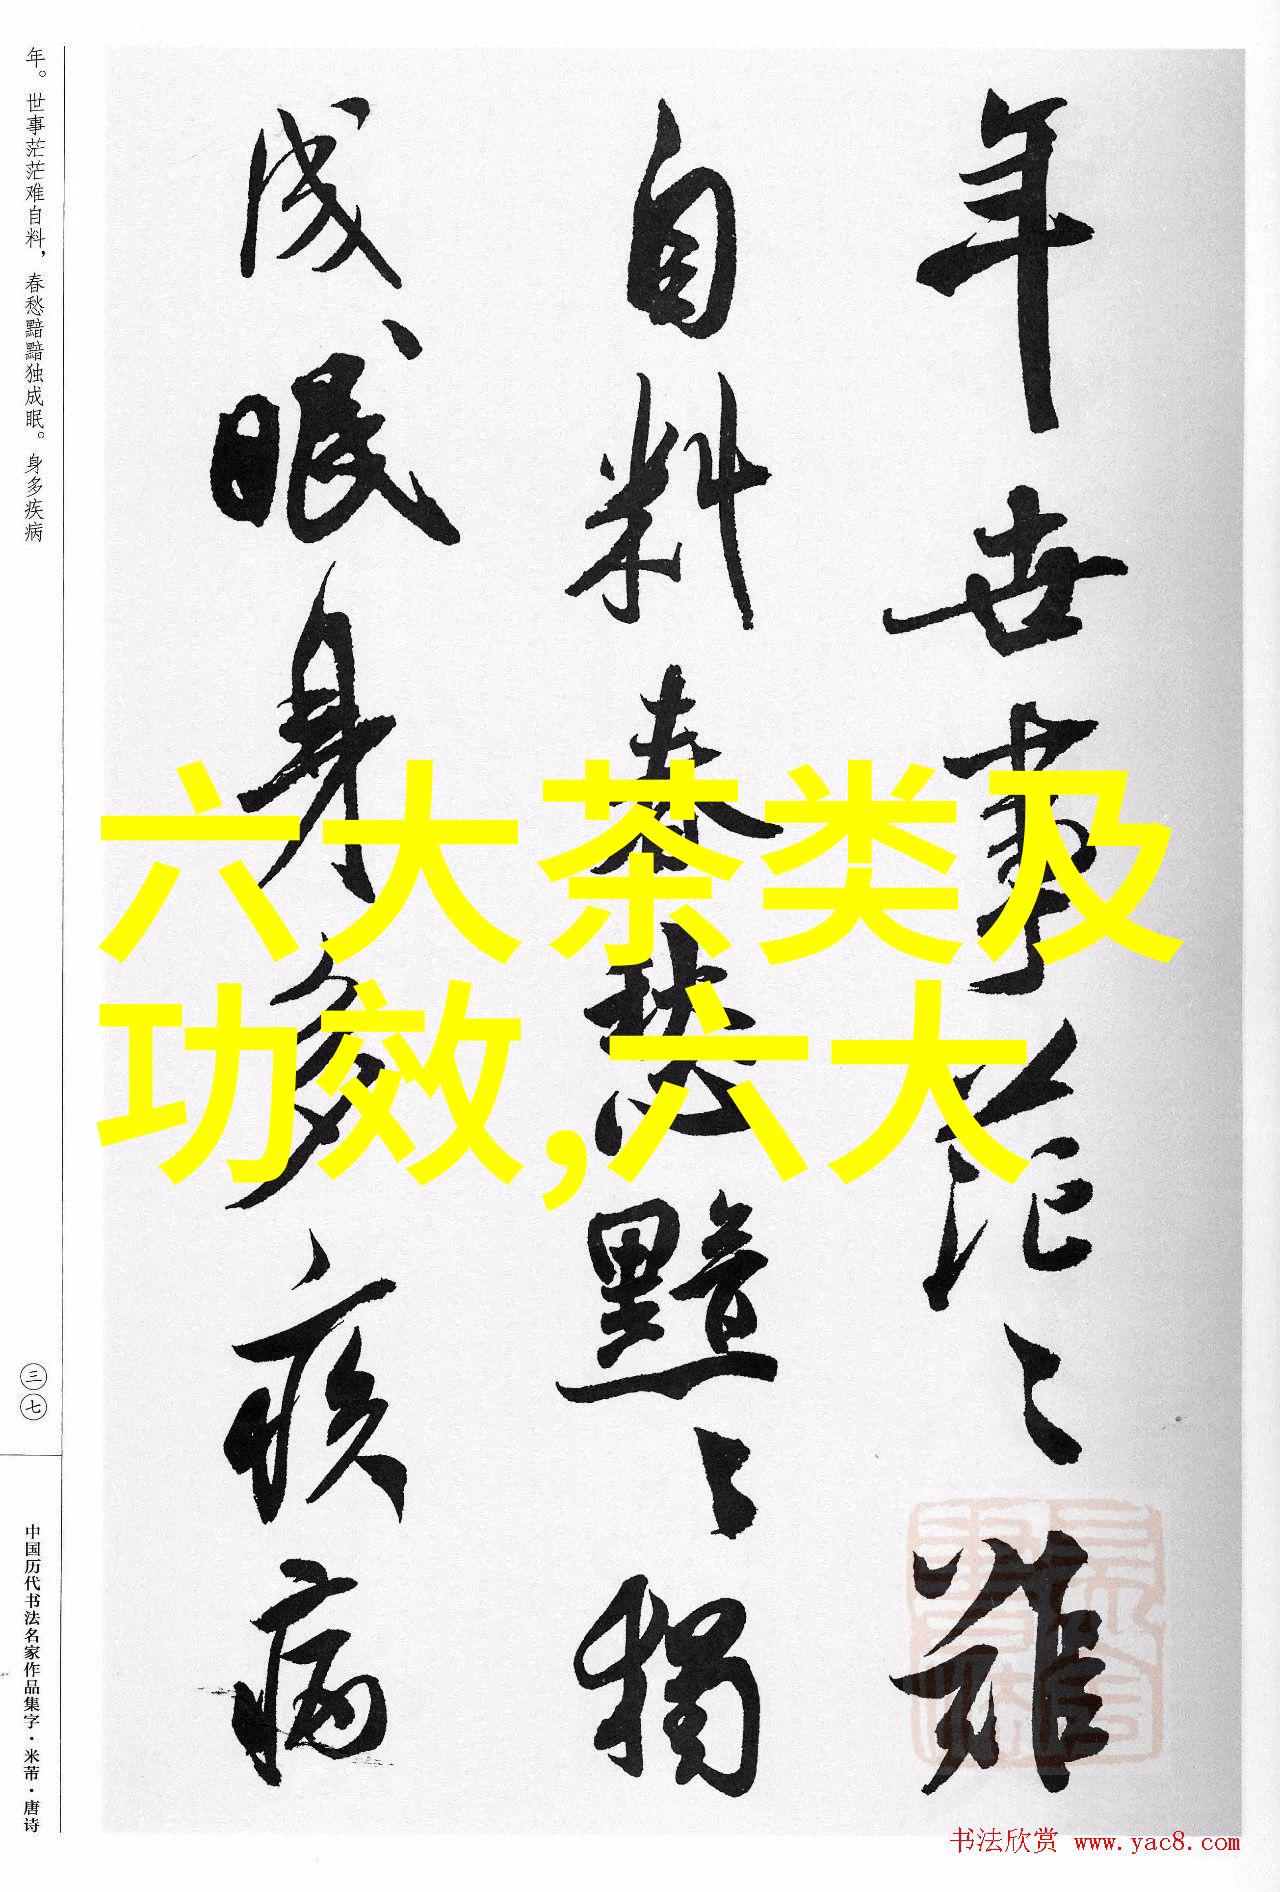 年世事茫〻难
自料春愁黯〻独
成眠身多疾病
六大茶类及
功效,六大
年。世事茫茫难自料，春愁黯黯独成眠。身多疾病
三七
中国历代书法名家作品集字·米芾·唐诗
书法欣赏 www.yac8.com